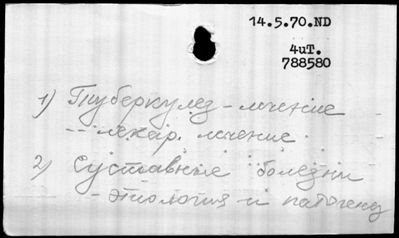 14.5.70.ND
4иT.
788580
1) Туберкулез - лечение
-- лекар. лечение.
2) Суставные болезни
- этиология и патогенез